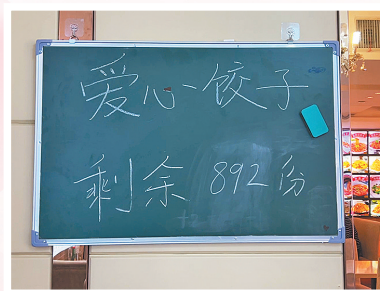 爱心饺子
剩余 892 份